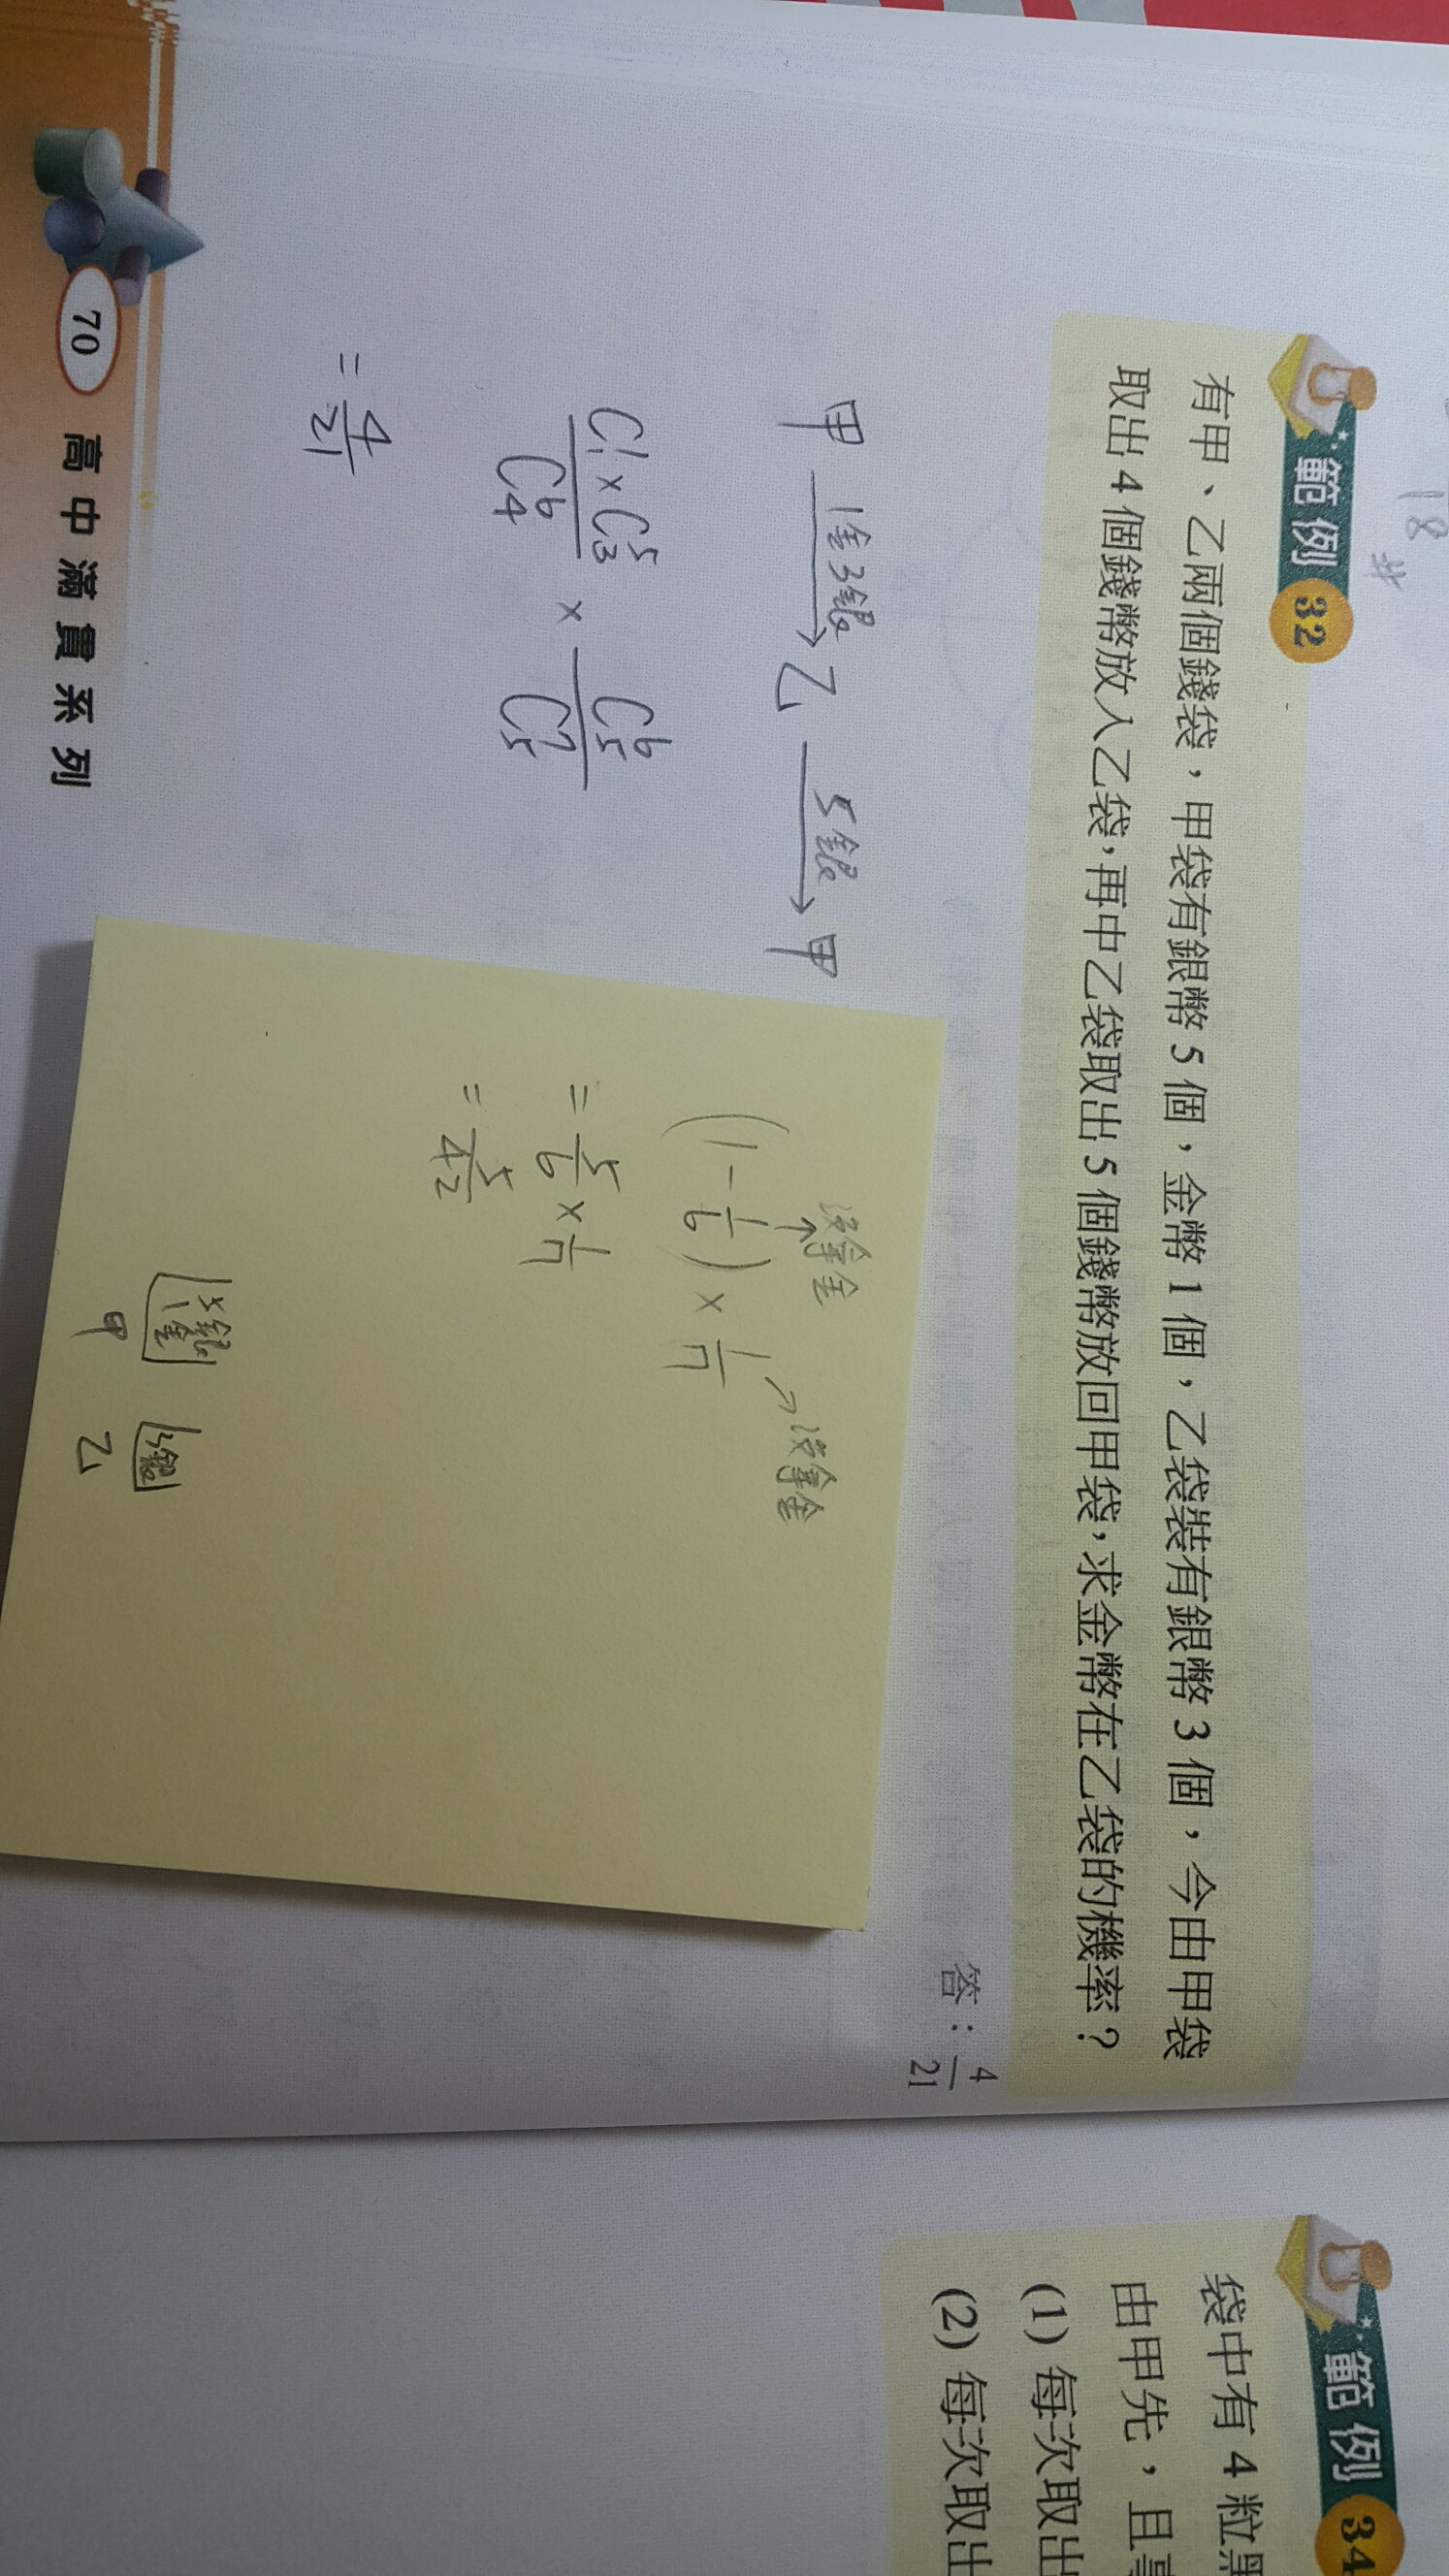 18 #
範例 32
有甲、乙兩個錢袋，甲袋有銀幣 5 個，金幣 1 個，乙袋裝有銀幣 3 個，今由甲袋
取出 4 個錢幣放入乙袋，再中乙袋取出 5 個錢幣放回甲袋，求金幣在乙袋的機率？
答：4/21
甲 1金3銀→ 乙 5銀→ 甲
(C^1_1 × C^5_3)/C^6_4 × C^6_5/C^7_5
= 4/21
沒拿金 沒拿金
(1 - 1/6) × 1/7
= 5/6 × 1/7
= 5/42
5銀 1金 3銀
甲 乙
70 高中滿貫系列
範例 34
袋中有 4 粒黑
由甲先，且
(1) 每次取出
(2) 每次取出